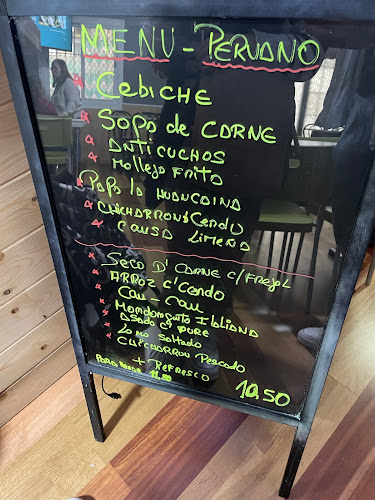 MENU - PERUANO
CEBICHE
SOPA de CARNE
ANTICUCHOS
MOLLEJA FRITA
PAPA la HUANCAINA
CHICHARRON d Cendo
CAUSA LIMEÑA
SECO D' CARNE C/FREJOL
ARROZ C' Cendo
CAU - CAU
ASADO C/ PURE
Lomo SALTADO
CHICHARRON PESCADO
+ REFRESCO
10.50
PARA
11.50